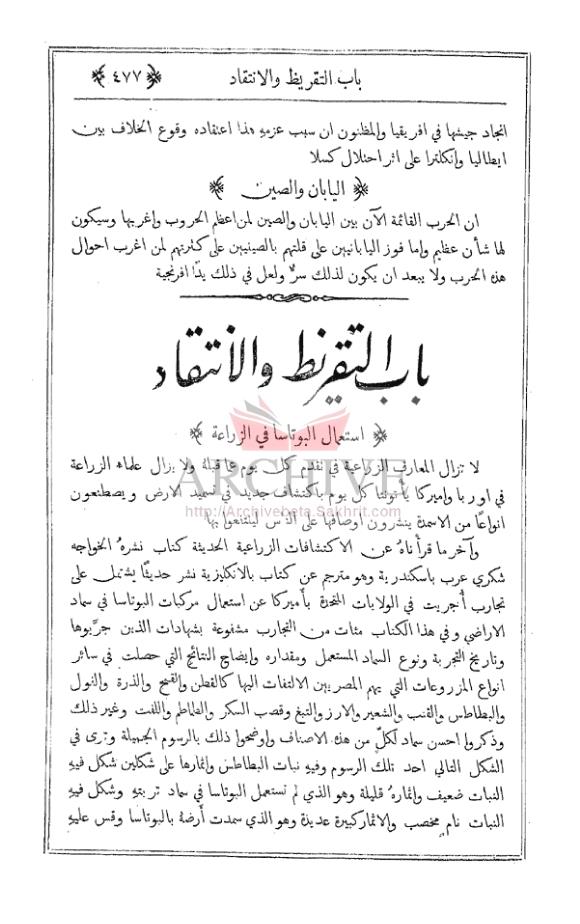 باب التقريظ والانتقاد ﴿٤٧٧﴾
انجاد جيشها في افريقيا والمظنون ان سبب عزمهِ هذا اعتقاده وقوع الخلاف بين
ايطاليا وإنكلترا على اثر احتلال كسلا
﴿ اليابان والصين ﴾
ان الحرب القائمة الآن بين اليابان والصين لمن اعظم الحروب واغربها وسيكون
لها شأن عظيم وإما فوز اليابانيين على قلتهم بالصينيين على كثرتهم لمن اغرب احوال
هذه الحرب ولا يبعد ان يكون لذلك سرٌّ ولعل في ذلك يدًا افرنجية
باب التقريظ والانتقاد
﴿ استعمال البوتاسا في الزراعة ﴾
لا تزال المعارف الزراعية في تقدم كل يوم عما قبلهُ ولا يزال علماء الزراعة
ARCHIVE
في اوربا واميركا يأتوننا كل يوم باكتشاف جديد في تسميد الارض ويصطنعون
http://Archivebeta.Sakhrit.com
انواعًا من الاسمدة ينشرون اوصافها على الناس لينتفعوا بها
وآخر ما قرأناهُ عن الاكتشافات الزراعية الحديثة كتاب نشرهُ الخواجه
شكري عرب باسكندرية وهو مترجم عن كتاب بالانكليزية نشر حديثًا يشتمل على
تجارب أُجريت في الولايات المتحدة بأميركا عن استعمال مركبات البوتاسا في سماد
الاراضي وفي هذا الكتاب مئات من التجارب مشفوعة بشهادات الذين جرّبوها
وتاريخ التجربة ونوع السماد المستعمل ومقداره وإيضاح النتائج التي حصلت في سائر
انواع المزروعات التي يهم المصريين الالتفات اليها كالقطن والقمح والذرة والفول
والبطاطس والقنب والشعير والارز والتبغ وقصب السكر والطماطم واللفت وغير ذلك
وذكروا احسن سماد لكلٍّ من هذه الاصناف واوضحوا ذلك بالرسوم الجميلة وترى في
الشكل التالي احد تلك الرسوم وفيهِ نبات البطاطس وإثمارها على شكلين شكل فيهِ
النبات ضعيف وإثمارهُ قليلة وهو الذي لم تستعمل البوتاسا في سماد تربتهِ وشكل فيهِ
النبات نامٍ مخصب والاثمار كبيرة عديدة وهو الذي سمدت أرضهُ بالبوتاسا وقس عليهِ